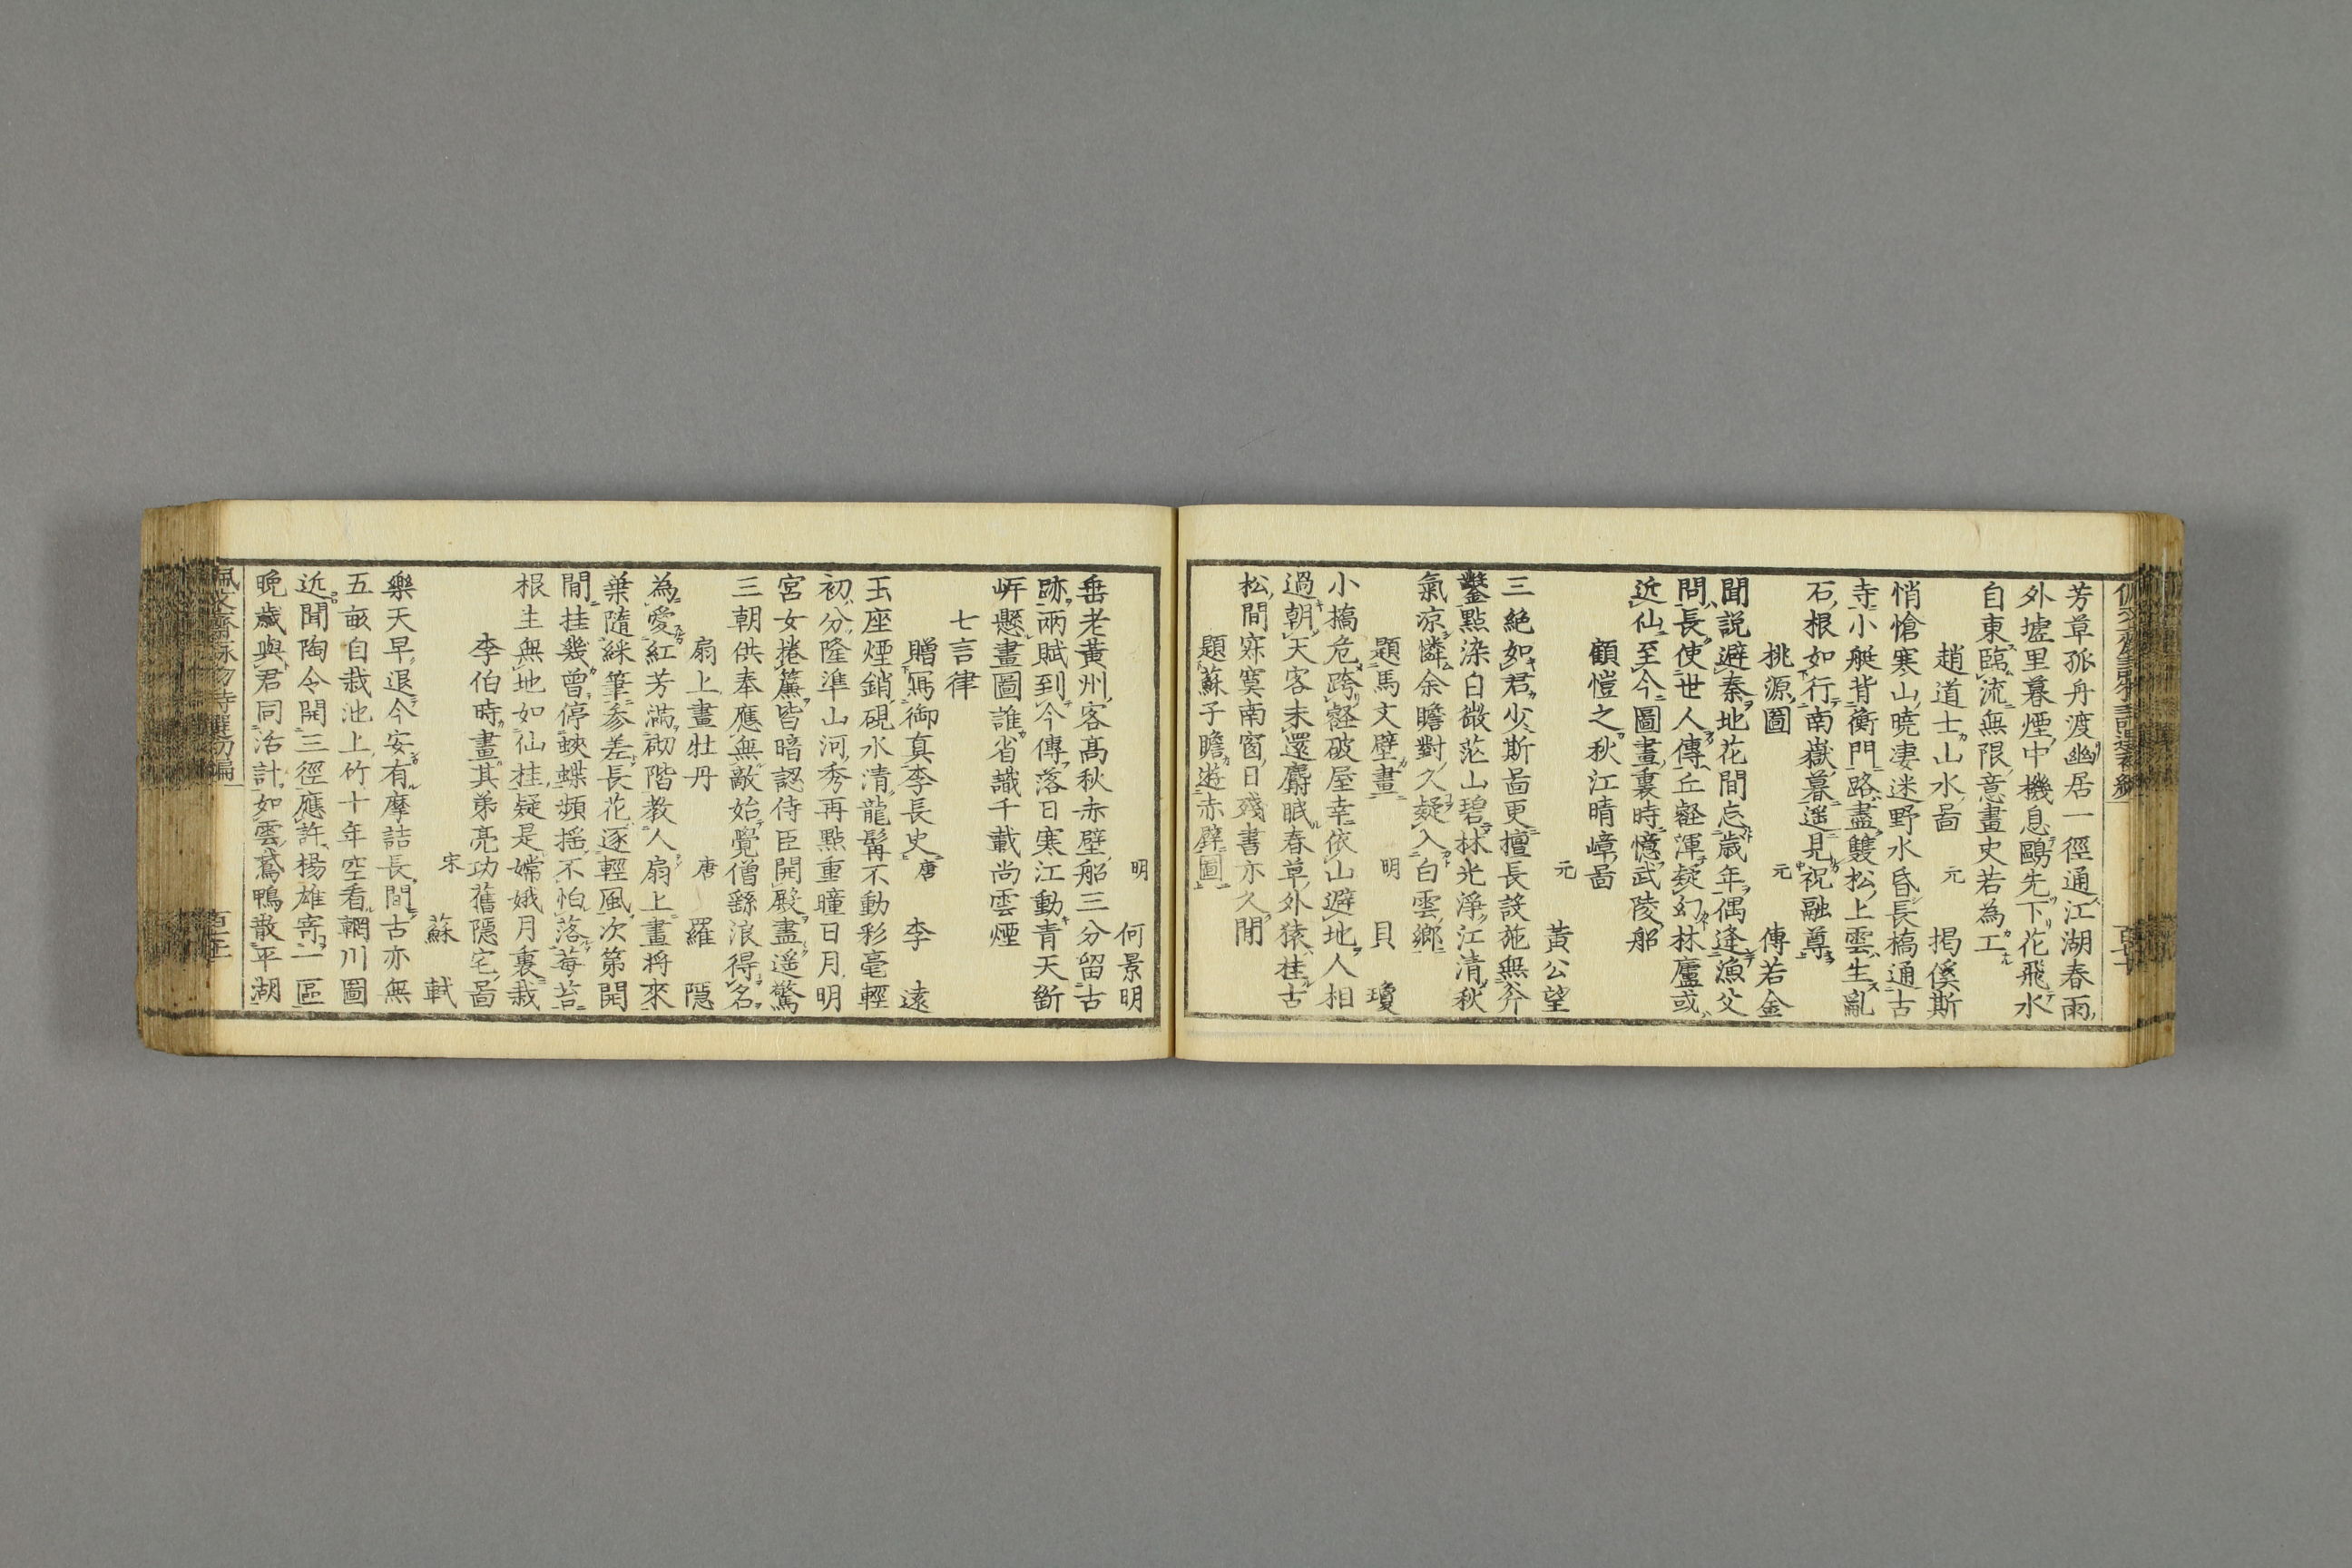 芳草孤舟渡幽居一徑通江湖春雨
外墟里暮煙中機息鷗先下花飛水
自東臨流無限意畫史若為工
趙道士山水啚 元 揭傒斯
悄愴寒山曉凄迷野水昏長橋通古
寺小艇背衡門路盡雙松上雲生亂
石根如行南嶽暮遥見祝融尊
桃源圖 元 傅若金
聞説避秦地花間忘歳年偶逢漁父
問長使世人傳丘壑渾疑幻林廬或
近仙至今圖畫裏時憶武陵船
顧愷之秋江晴嶂啚
元 黃公望
三絶如君少斯啚更擅長設施無斧
鑿點染自微茫山碧林光淨江清秋
氣凉憐余瞻對久疑入白雲鄉
題馬文壁畫 明 貝瓊
小橋危跨壑破屋幸依山避地人相
過朝天客未還麝眠春草外猿挂古
松間寂寞南窗日殘書亦久閒
題蘇子瞻遊赤壁圖
明 何景明
垂老黃州客高秋赤壁船三分留古
跡兩賦到今傳落日寒江動青天斷
岸懸畫圖誰省識千載尚雲煙
七言律
贈寫御真李長史 唐 李遠
玉座煙銷硯水清龍髯不動彩毫輕
初分隆準山河秀再點重瞳日月明
宮女捲簾皆暗認侍臣開殿盡遥驚
三朝供奉應無敵始覺僧繇浪得名
扇上畫牡丹 唐 羅隱
為愛紅芳滿砌階教人扇上畫將來
葉隨綵筆參差長花逐輕風次第開
閒挂幾曾停蛺蝶頻揺不怕落莓苔
根生無地如仙桂疑是嫦娥月裏栽
李伯時畫其弟亮功舊隱宅啚
宋 蘇軾
樂天早退今安有摩詰長閒古亦無
五畝自栽池上竹十年空看輞川圖
近聞陶令開三徑應許楊雄寄一區
晚歲與君同活計如雲鵞鴨散平湖
佩文齋詠物詩選初編